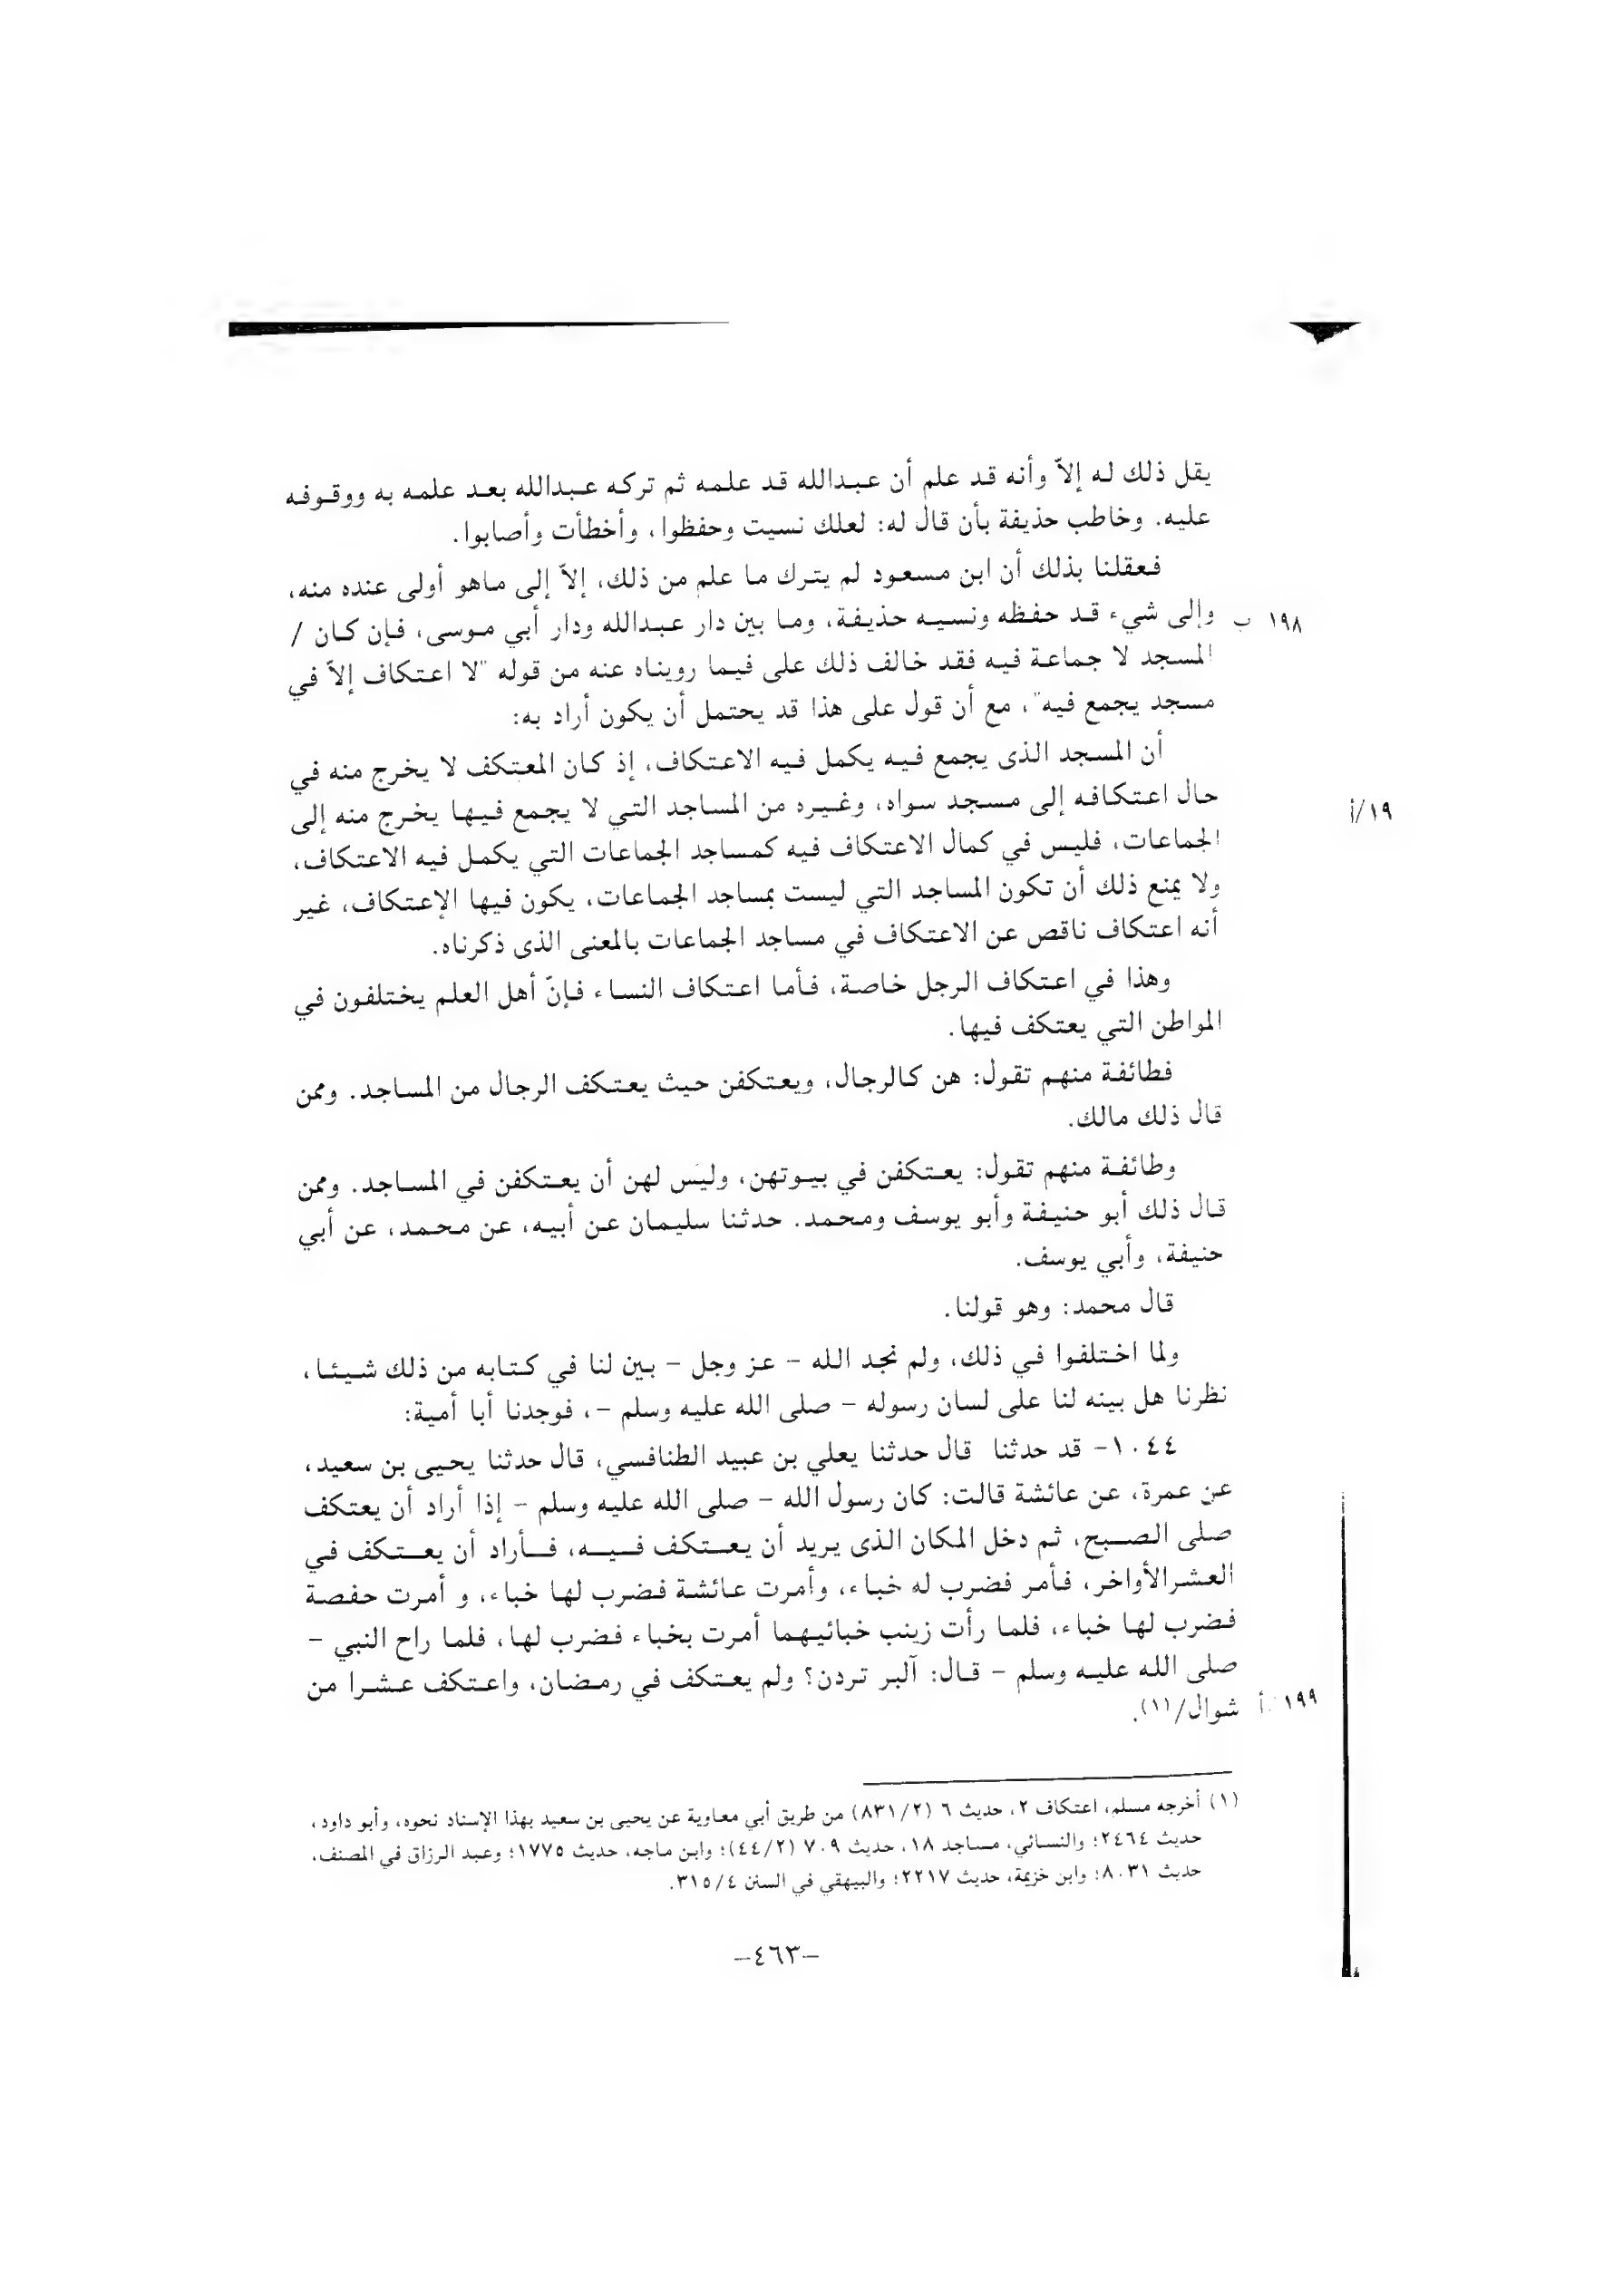 يقل ذلك له إلاّ وأنه قد علم أن عبدالله قد علمه ثم تركه عبدالله بعد علمه به ووقوفه
عليه. وخاطب حذيفة بأن قال له: لعلك نسيت وحفظوا، وأخطأت وأصابوا.
فعقلنا بذلك أن ابن مسعود لم يترك ما علم من ذلك، إلاّ إلى ماهو أولى عنده منه،
وإلى شيء قد حفظه ونسيه حذيفة، وما بين دار عبدالله ودار أبي موسى، فإن كان / ١٩٨ ب
المسجد لا جماعة فيه فقد خالف ذلك على فيما رويناه عنه من قوله "لا اعتكاف إلاّ في
مسجد يجمع فيه"، مع أن قول على هذا قد يحتمل أن يكون أراد به:
أن المسجد الذى يجمع فيه يكمل فيه الاعتكاف، إذ كان المعتكف لا يخرج منه في
حال اعتكافه إلى مسجد سواه، وغيره من المساجد التي لا يجمع فيها يخرج منه إلى ١٩/أ
الجماعات، فليس في كمال الاعتكاف فيه كمساجد الجماعات التي يكمل فيه الاعتكاف،
ولا يمنع ذلك أن تكون المساجد التي ليست بمساجد الجماعات، يكون فيها الإعتكاف، غير
أنه اعتكاف ناقص عن الاعتكاف في مساجد الجماعات بالمعنى الذى ذكرناه.
وهذا في اعتكاف الرجل خاصة، فأما اعتكاف النساء فإنّ أهل العلم يختلفون في
المواطن التي يعتكف فيها.
فطائفة منهم تقول: هن كالرجال، ويعتكفن حيث يعتكف الرجال من المساجد. وممن
قال ذلك مالك.
وطائفة منهم تقول: يعتكفن في بيوتهن، وليس لهن أن يعتكفن في المساجد. وممن
قال ذلك أبو حنيفة وأبو يوسف ومحمد. حدثنا سليمان عن أبيه، عن محمد، عن أبي
حنيفة، وأبي يوسف.
قال محمد: وهو قولنا.
ولما اختلفوا في ذلك، ولم نجد الله - عز وجل - بين لنا في كتابه من ذلك شيئا،
نظرنا هل بينه لنا على لسان رسوله - صلى الله عليه وسلم -، فوجدنا أبا أمية:
١٠٤٤- قد حدثنا قال حدثنا يعلي بن عبيد الطنافسي، قال حدثنا يحيى بن سعيد،
عن عمرة، عن عائشة قالت: كان رسول الله - صلى الله عليه وسلم - إذا أراد أن يعتكف
صلى الصبح، ثم دخل المكان الذى يريد أن يعتكف فيه، فأراد أن يعتكف في
العشرالأواخر، فأمر فضرب له خباء، وأمرت عائشة فضرب لها خباء، و أمرت حفصة
فضرب لها خباء، فلما رأت زينب خبائيهما أمرت بخباء فضرب لها، فلما راح النبي -
صلى الله عليه وسلم - قال: آلبر تردن؟ ولم يعتكف في رمضان، واعتكف عشرا من
شوال/(١). ١٩٩ أ
(١) أخرجه مسلم، اعتكاف ٢، حديث ٦ (٨٣١/٢) من طريق أبي معاوية عن يحيى بن سعيد بهذا الإسناد نحوه، وأبو داود،
حديث ٢٤٦٤؛ والنسائي، مساجد ١٨، حديث ٧٠٩ (٤٤/٢)؛ وابن ماجه، حديث ١٧٧٥؛ وعبد الرزاق في المصنف،
حديث ٨٠٣١؛ وابن خزيمة، حديث ٢٢١٧؛ والبيهقي في السنن ٣١٥/٤.
-٤٦٣-